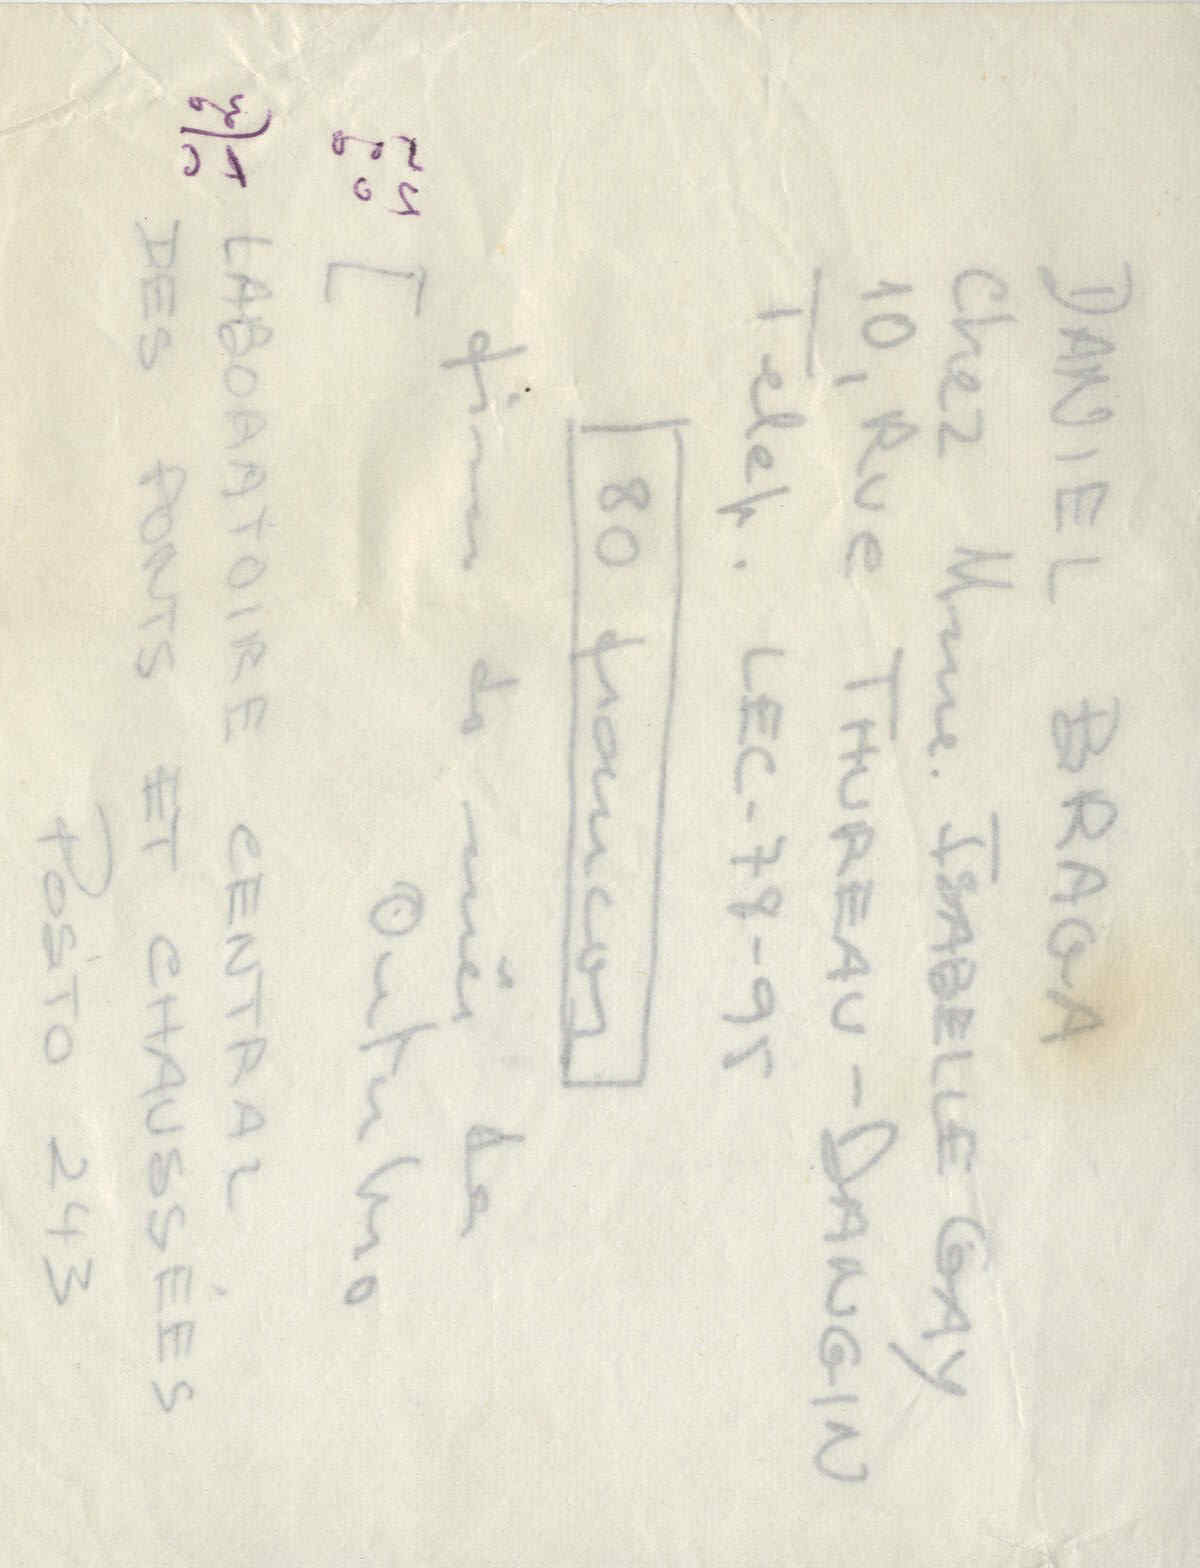 DANIEL BRAGA
Chez Mme. ISABELLE GAY
10, RUE THUREAU-DANGIN
Telef. LEC-78-95
80 francos
fim do mês de
Outubro
LABORATOIRE CENTRAL
DES PONTS ET CHAUSSÉES
POSTO 243